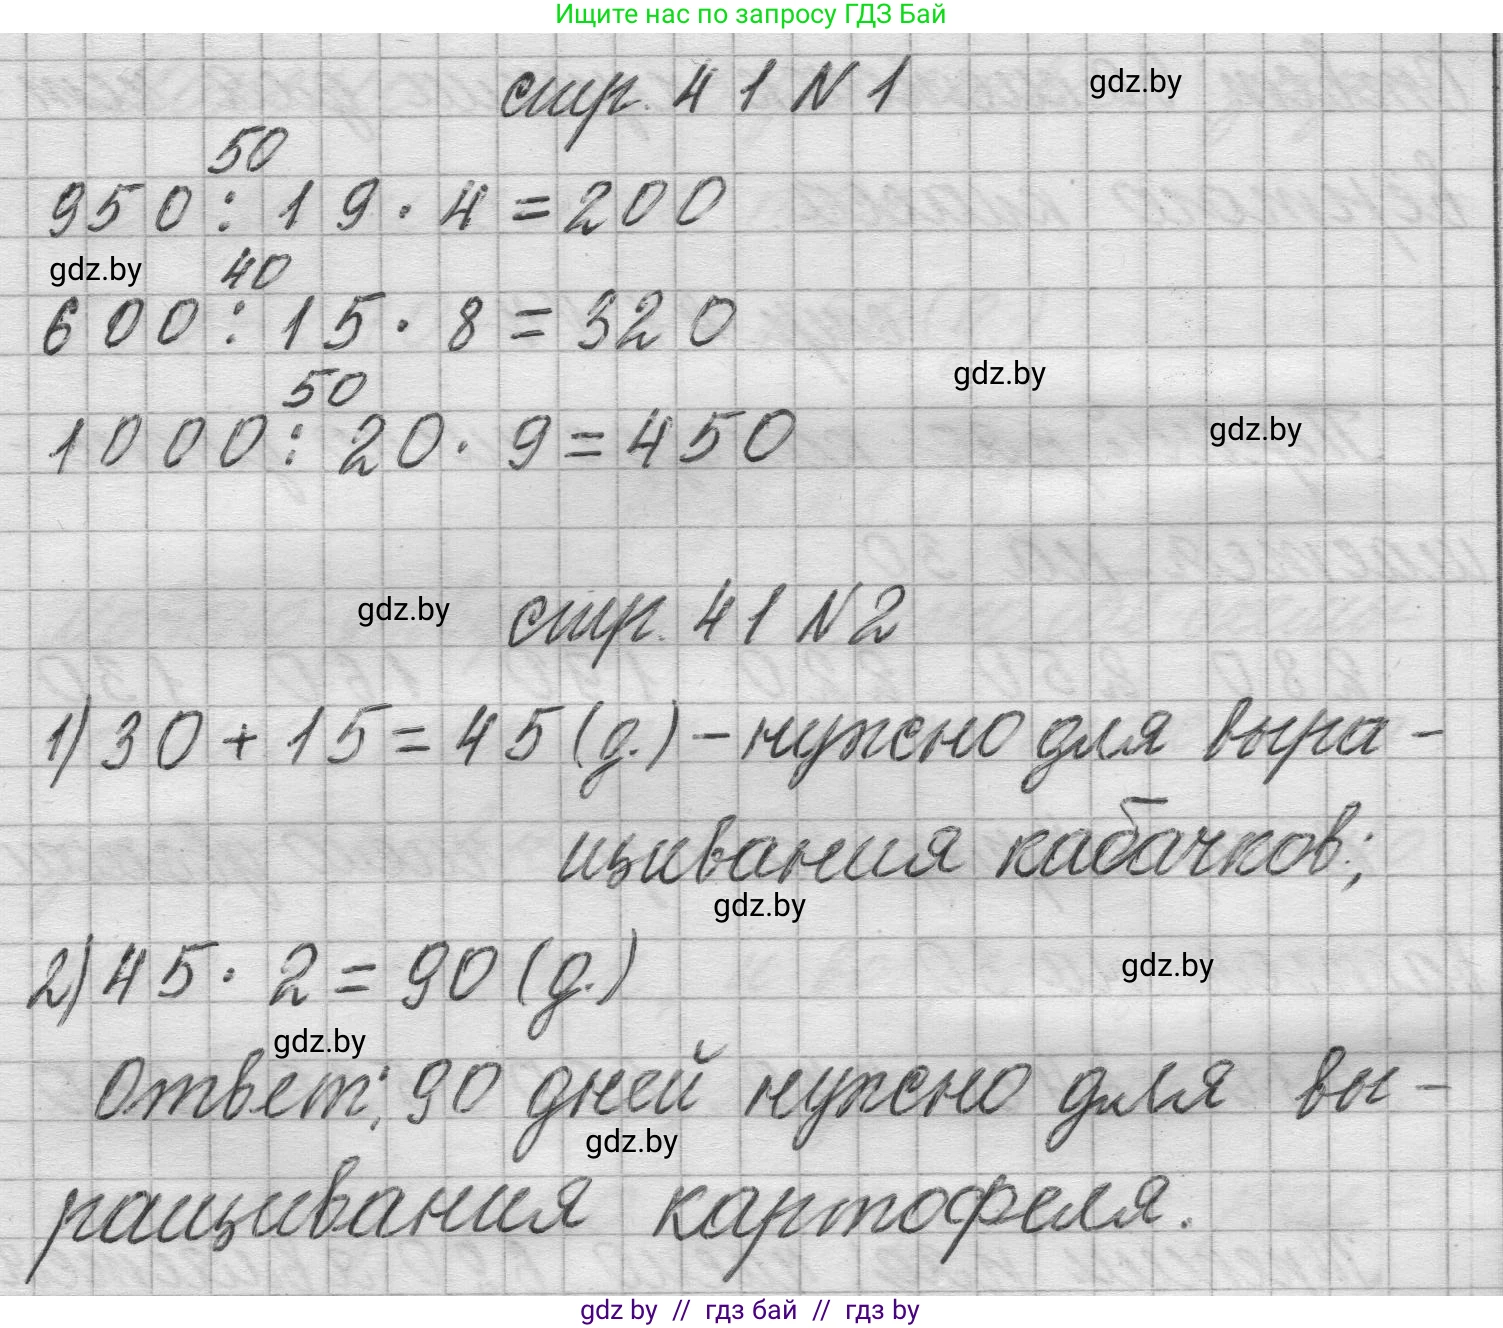 Ищите нас по запросу ГДЗ Бай
стр. 41 N 1
gdz.by
50
950 : 19 · 4 = 200
gdz.by
40
600 : 15 · 8 = 320
gdz.by
50
1000 : 20 · 9 = 450
gdz.by
gdz.by
стр. 41 N 2
1) 30 + 15 = 45 (д.) – нужно для выра-
щивания кабачков;
gdz.by
2) 45 · 2 = 90 (д.)
gdz.by
gdz.by
Ответ: 90 дней нужно для вы-
gdz.by
ращивания картофеля.
gdz by // гдз бай // гдз by